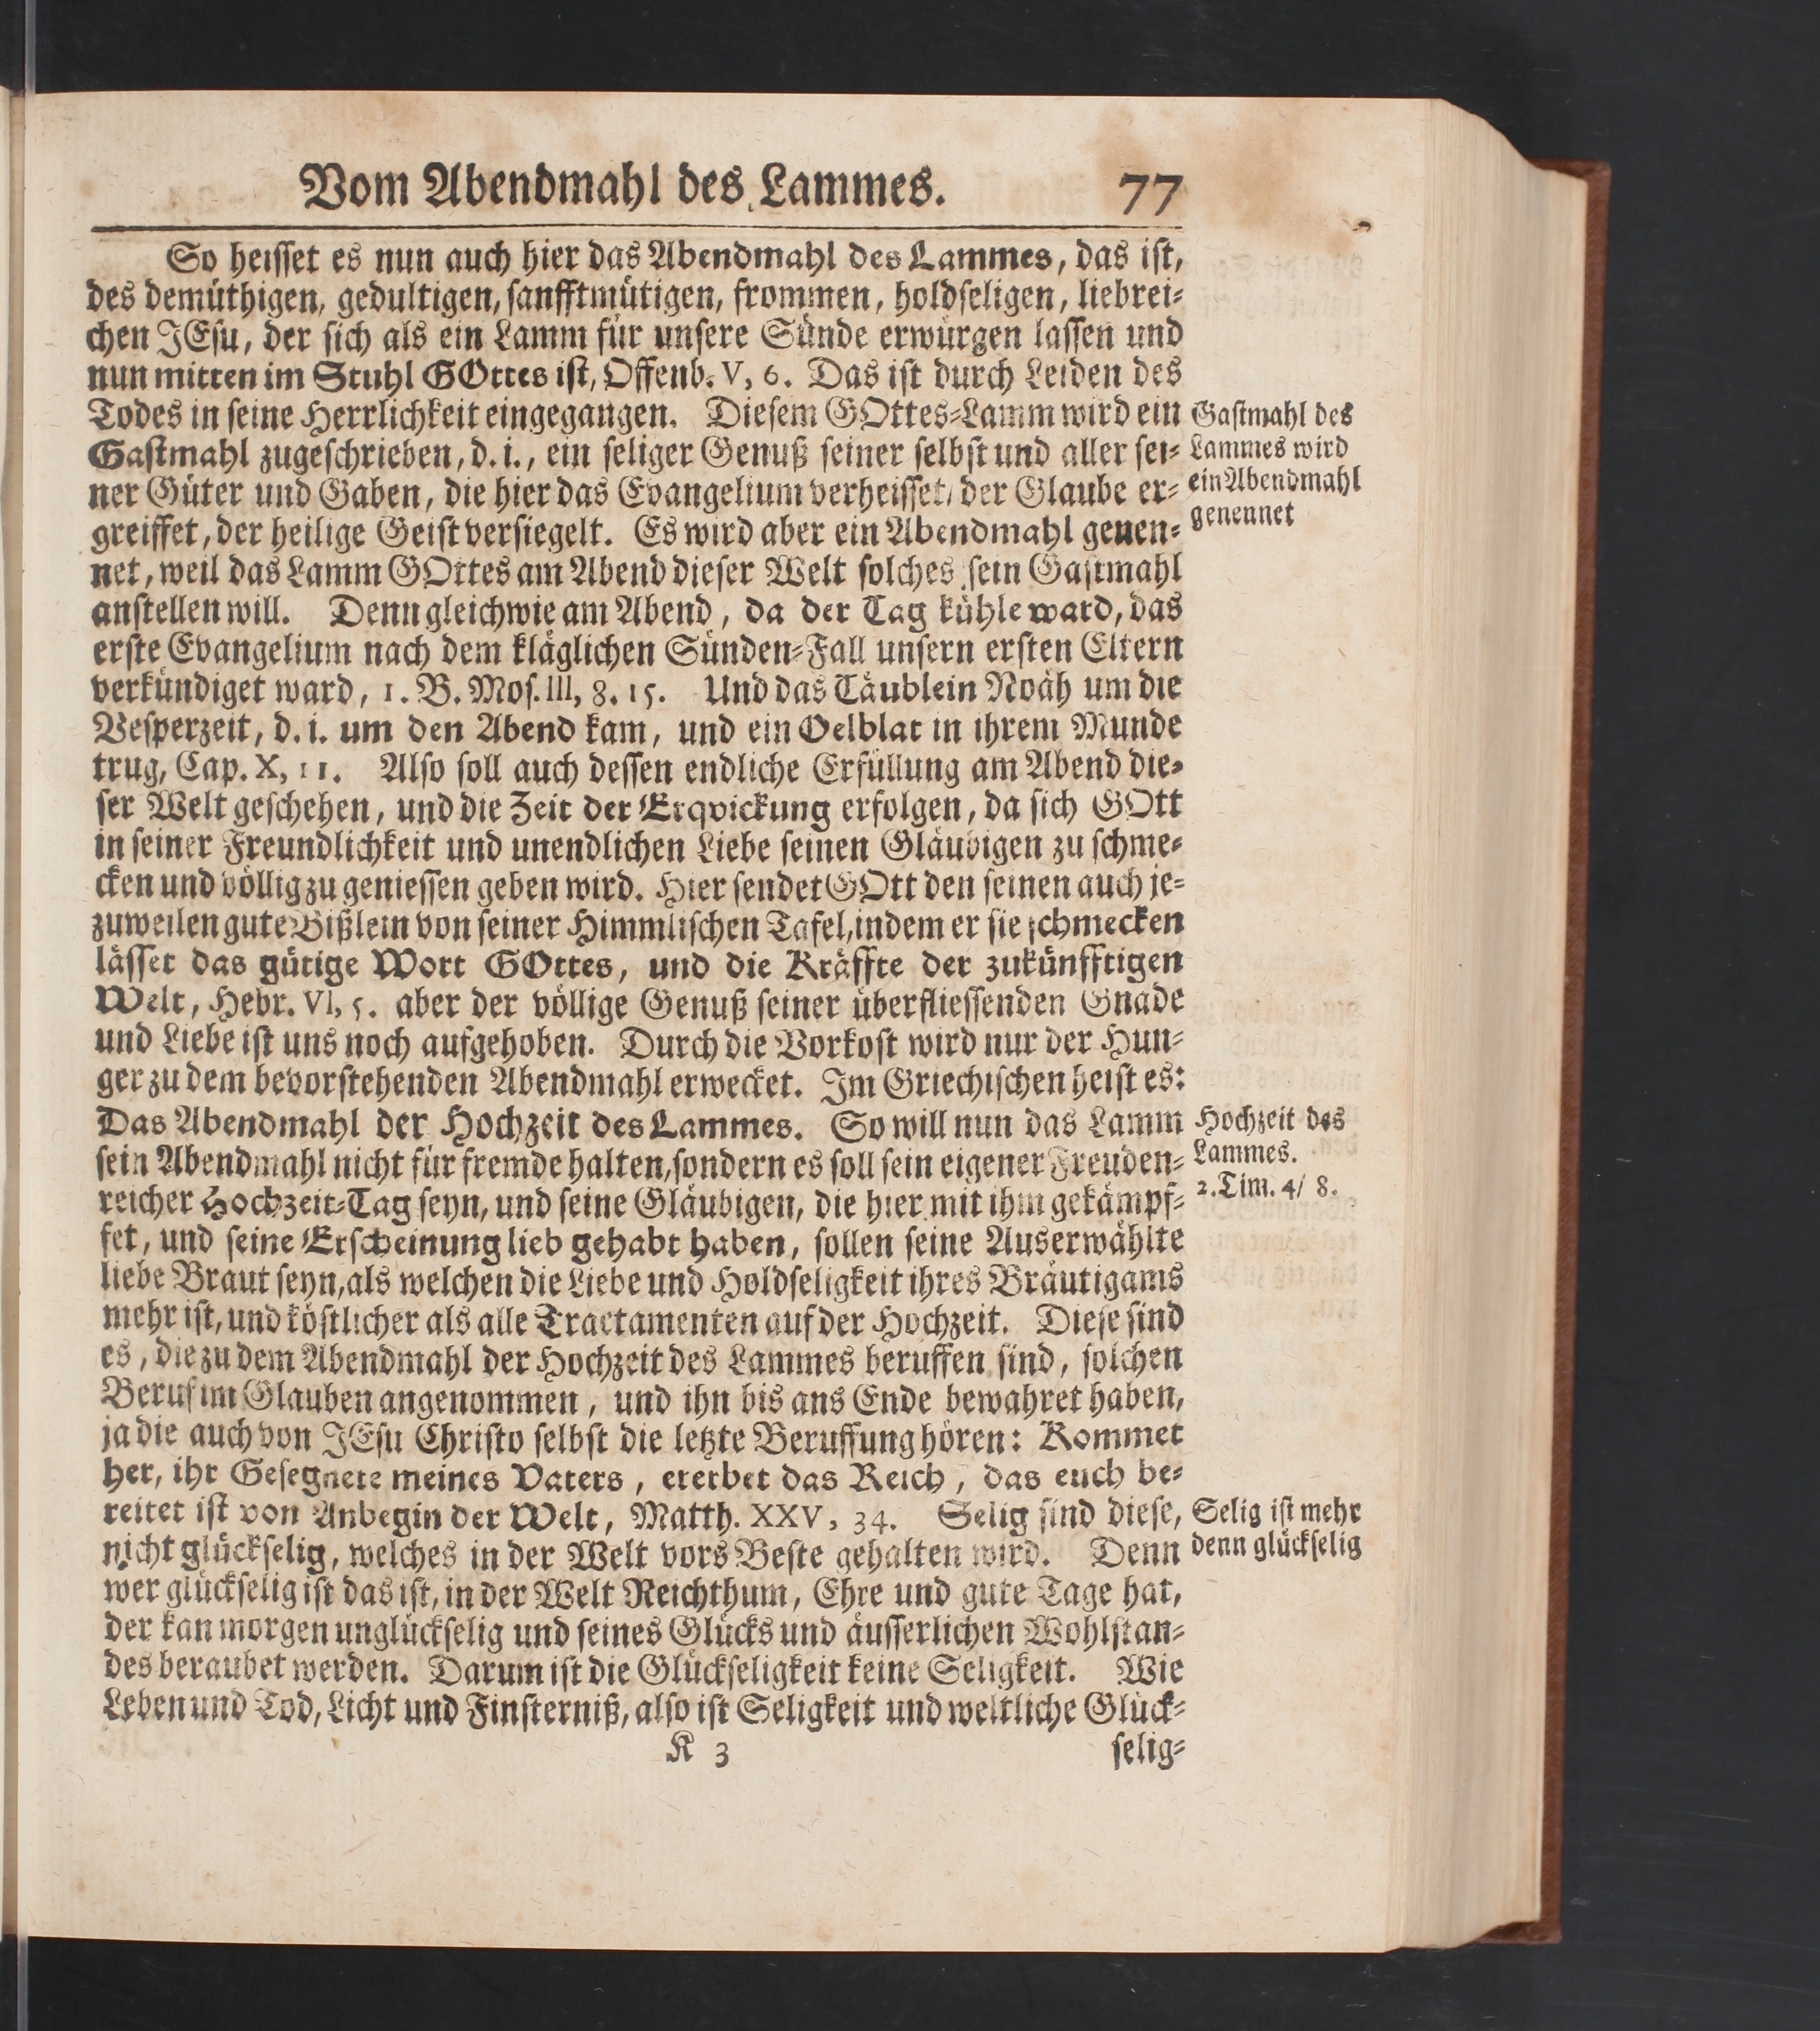 Vom Abendmahl des Lammes. 77
So heisset es nun auch hier das Abendmahl des Lammes, das ist,
des demüthigen, gedultigen, sanfftmütigen, frommen, holdseligen, liebrei-
chen JEsu, der sich als ein Lamm für unsere Sünde erwürgen lassen und
nun mitten im Stuhl GOttes ist, Offenb. V, 6. Das ist durch Leiden des
Todes in seine Herrlichkeit eingegangen. Diesem GOttes-Lamm wird ein
Gastmahl zugeschrieben, d. i., ein seliger Genuß seiner selbst und aller sei-
ner Güter und Gaben, die hier das Evangelium verheisset, der Glaube er-
greiffet, der heilige Geist versiegelt. Es wird aber ein Abendmahl genen-
net, weil das Lamm GOttes am Abend dieser Welt solches sein Gastmahl
anstellen will. Denn gleichwie am Abend, da der Tag kühle ward, das
erste Evangelium nach dem kläglichen Sünden-Fall unsern ersten Eltern
verkündiget ward, 1. B. Mos. III, 8. 15. Und das Täublein Noäh um die
Vesperzeit, d. i. um den Abend kam, und ein Oelblat in ihrem Munde
trug, Cap. X, 11. Also soll auch dessen endliche Erfüllung am Abend die-
ser Welt geschehen, und die Zeit der Erqvickung erfolgen, da sich GOtt
in seiner Freundlichkeit und unendlichen Liebe seinen Gläubigen zu schme-
cken und völlig zu geniessen geben wird. Hier sendet GOtt den seinen auch je-
zuweilen gute Bißlein von seiner Himmlischen Tafel, indem er sie schmecken
lässet das gütige Wort GOttes, und die Kräffte der zukünfftigen
Welt, Hebr. VI, 5. aber der völlige Genuß seiner überfliessenden Gnade
und Liebe ist uns noch aufgehoben. Durch die Vorkost wird nur der Hun-
ger zu dem bevorstehenden Abendmahl erwecket. Im Griechischen heist es:
Das Abendmahl der Hochzeit des Lammes. So will nun das Lamm
sein Abendmahl nicht für fremde halten, sondern es soll sein eigener Freuden-
reicher Hochzeit-Tag seyn, und seine Gläubigen, die hier mit ihm gekämpf-
fet, und seine Erscheinung lieb gehabt haben, sollen seine Auserwählte
liebe Braut seyn, als welchen die Liebe und Holdseligkeit ihres Bräutigams
mehr ist, und köstlicher als alle Tractamenten auf der Hochzeit. Diese sind
es, die zu dem Abendmahl der Hochzeit des Lammes beruffen sind, solchen
Beruf im Glauben angenommen, und ihn bis ans Ende bewahret haben,
ja die auch von JEsu Christo selbst die letzte Beruffung hören: Kommet
her, ihr Gesegnete meines Vaters, ererbet das Reich, das euch be-
reitet ist von Anbegin der Welt, Matth. XXV, 34. Selig sind diese,
nicht glückselig, welches in der Welt vors Beste gehalten wird. Denn
wer glückselig ist das ist, in der Welt Reichthum, Ehre und gute Tage hat,
der kan morgen unglückselig und seines Glücks und äusserlichen Wohlstan-
des beraubet werden. Darum ist die Glückseligkeit keine Seligkeit. Wie
Leben und Tod, Licht und Finsterniß, also ist Seligkeit und weltliche Glück-
K 3 selig-
Gastmahl des
Lammes wird
ein Abendmahl
genennet
Hochzeit des
Lammes.
2. Tim. 4/ 8.
Selig ist mehr
denn glückselig